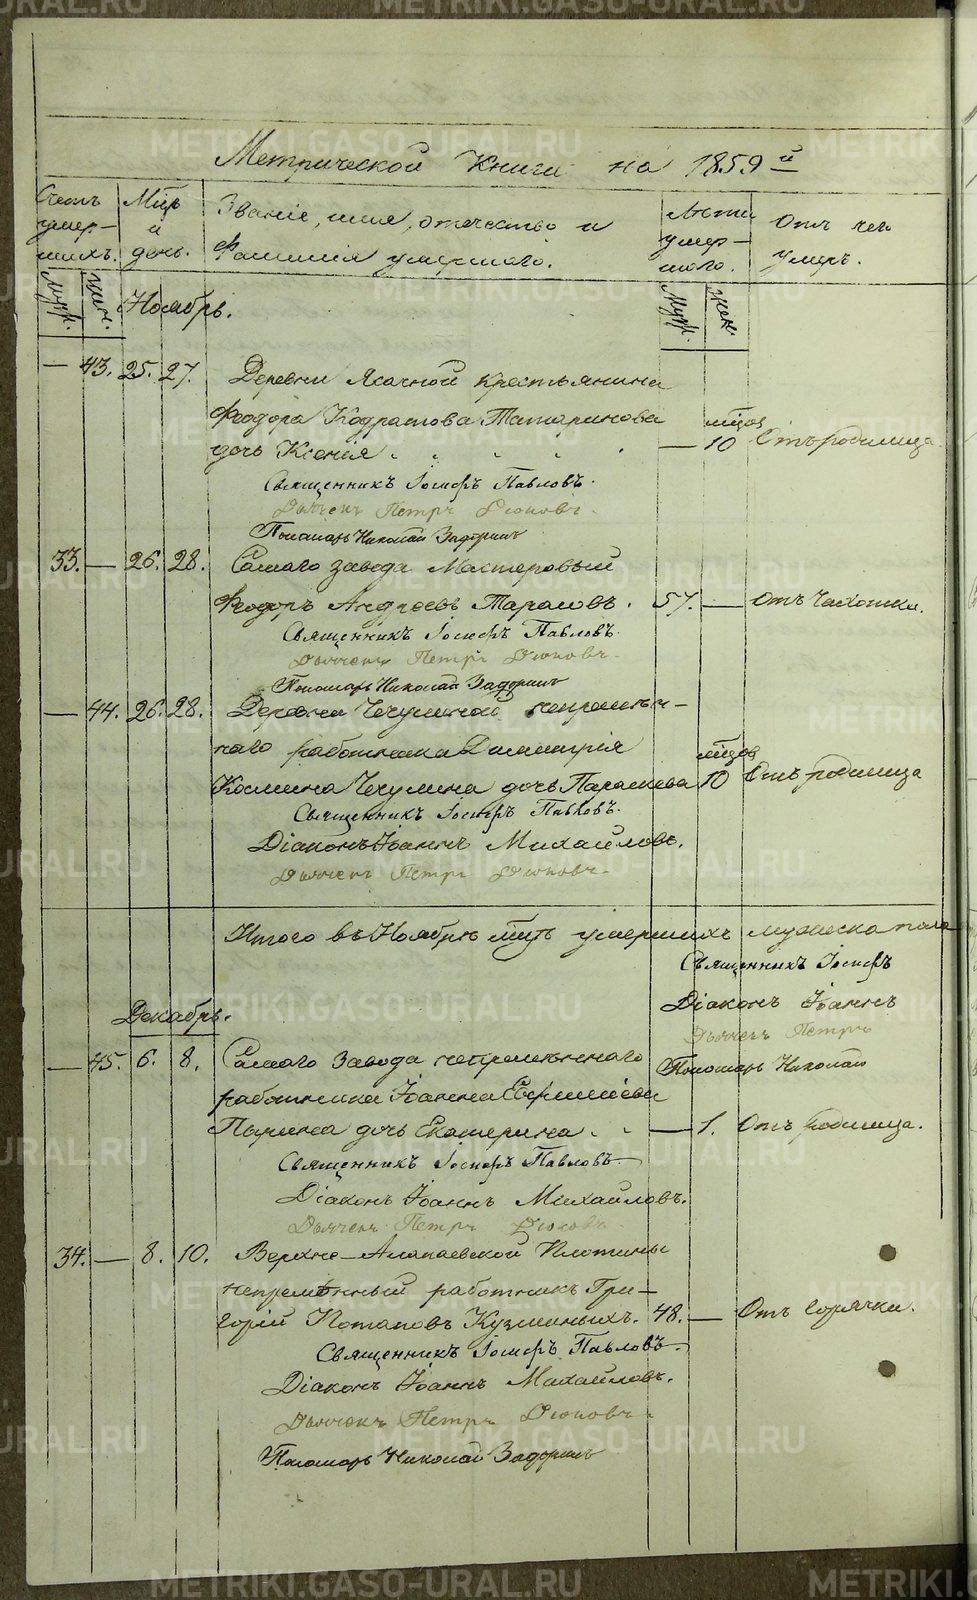 Метрической Книги на 1859й
Счетъ умер-шихъ.
Мцъ и день.
Званіе, имя, отечество и Фамилія умершаго.
Лѣта умер-шаго.
Отъ чего умеръ.
Муж. Жен. Ноябрь. Муж. Жен.
— 43. 25. 27. Деревни Ясачной крестьянина
Феодора Кодратова Татаринова мцов
дочь Ксенія — 10 Отъ родимца.
Священникъ Іосифъ Павловъ.
Дьячекъ Петръ Дюковъ.
Пономарь Николай Задоринъ
33. — 26. 28. Самаго завода Мастеровый
Феодоръ Андреевъ Тарасовъ. 57. — Отъ Чахотки.
Священникъ Іосифъ Павловъ.
Дьячекъ Петръ Дюковъ.
Пономарь Николай Задоринъ
— 44. 26. 28. Деревни Чечулиной непремѣн-
наго работника Димитрія мцов
Космина Чечулина дочь Параскева 10 Отъ родимца
Священникъ Іосифъ Павловъ.
Діаконъ Іоаннъ Михайловъ.
Дьячекъ Петръ Дюковъ.
Итого въ Ноябрѣ мцѣ умершихъ мужеска пола
Священникъ Іосифъ
Діаконъ Іоаннъ
Декабрь.
Дьячекъ Петръ
Пономарь Николай
— 45. 6. 8. Самаго Завода непремѣннаго
работника Іоанна
дочь Екатерина — 1. Отъ родимца.
Священникъ Іосифъ Павловъ.
Діаконъ Іоаннъ Михайловъ.
Дьячекъ Петръ Дюковъ.
34. — 8. 10. Верхне-Алапаевской Плотины
непремѣнный работникъ Гри-
горій Потаповъ Кузминыхъ. 48. — Отъ горячки.
Священникъ Іосифъ Павловъ.
Діаконъ Іоаннъ Михайловъ.
Дьячекъ Петръ Дюковъ.
Пономарь Николай Задоринъ
METRIKI.GASO-URAL.RU